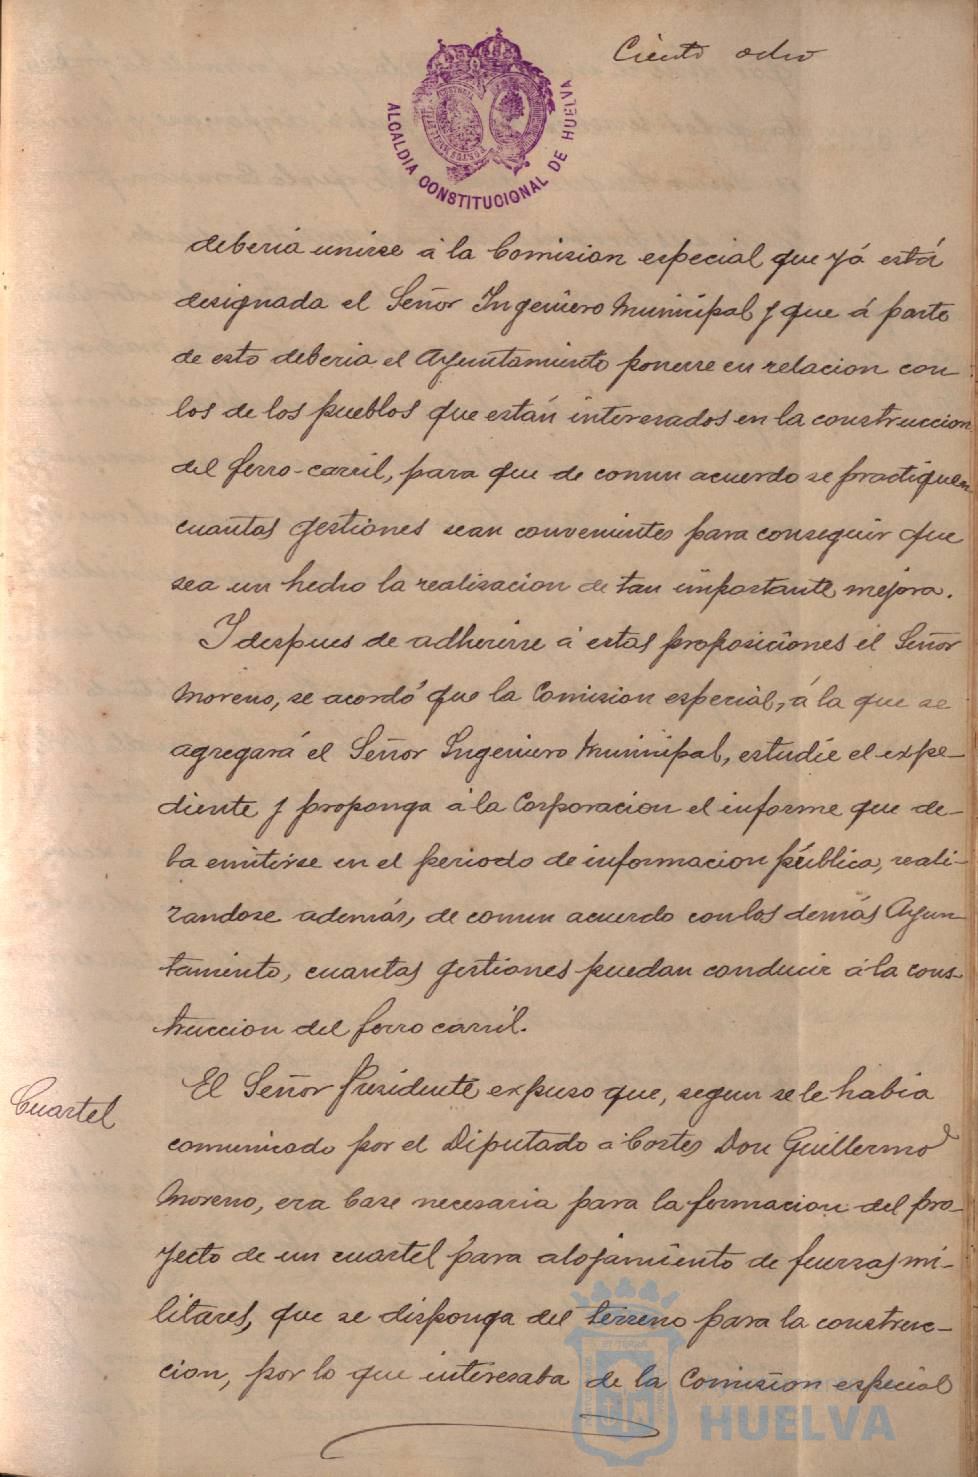 Ciento ocho
ALCALDIA CONSTITUCIONAL DE HUELVA
deberia unirse á la Comision especial que yá está
designada el Señor Ingeniero Municipal y que á parte
de esto deberia el Ayuntamiento ponerse en relacion con
los de los pueblos que están interesados en la construccion
del ferro-carril, para que de comun acuerdo se practiquen
cuantas gestiones sean convenientes para conseguir que
sea un hecho la realisacion de tan importante mejora.
Y despues de adherirse á estas proposiciones el Señor
Moreno, se acordó que la Comision especial, á la que se
agregará el Señor Ingeniero Municipal, estudie el expe-
diente y proponga á la Corporacion el informe que de-
ba emitirse en el periodo de informacion pública, reali-
zandose además, de comun acuerdo con los demás Ayun
tamiento, cuantas gestiones puedan conducir á la cons-
truccion del ferro carril.
Cuartel
El Señor Presidente expuso que, segun se le habia
comunicado por el Diputado á Cortes Don Guillermo
Moreno, era base necesaria para la formacion del pro-
yecto de un cuartel para alojamiento de fuersas mi-
litares, que se disponga del terreno para la construc-
cion, por lo que interesaba de la Comision especial
HUELVA